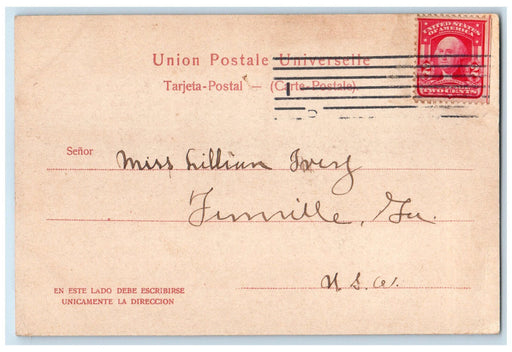 UNITED STATES
OF AMERICA
2 2
TWO CENTS
Union Postale Universelle
Tarjeta-Postal — (Carte-Postale).
1
D
Señor
Miss Lillian Ivey
Ga.
U. S. a.
EN ESTE LADO DEBE ESCRIBIRSE
UNICAMENTE LA DIRECCION